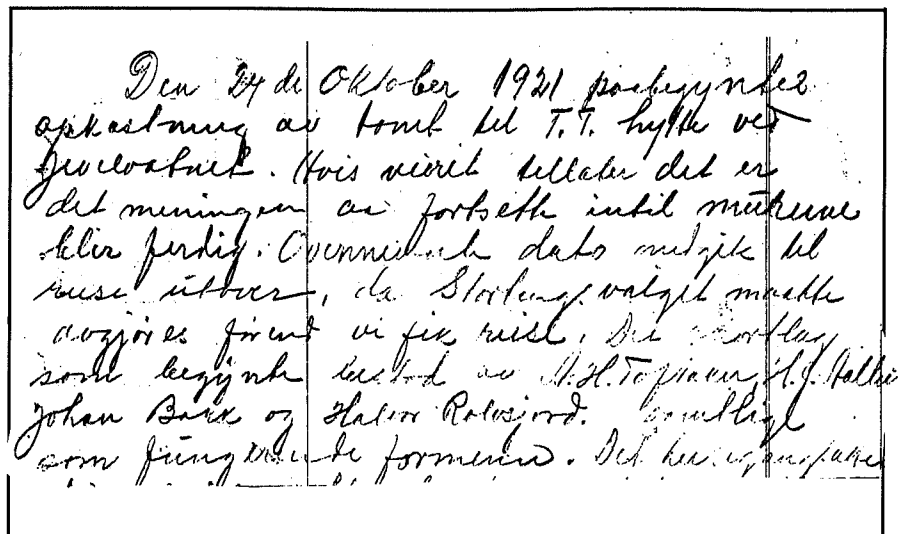 Den 24 de Oktober 1921 paabegyntes
opkastning av tomt til T.T. hytte ved
. Hvis veiret tillater det er
det meningen aa fortsette intil murerne
blir ferdig. Ovennevnte dato medgik til
reise utover, da Stortingsvalget maatte
avgjøres førend vi fik reise. Det
som begynte bestod av H.J.
Johan og Halvor Rolvsjord. samtlige
som fungerende formenn. Det her